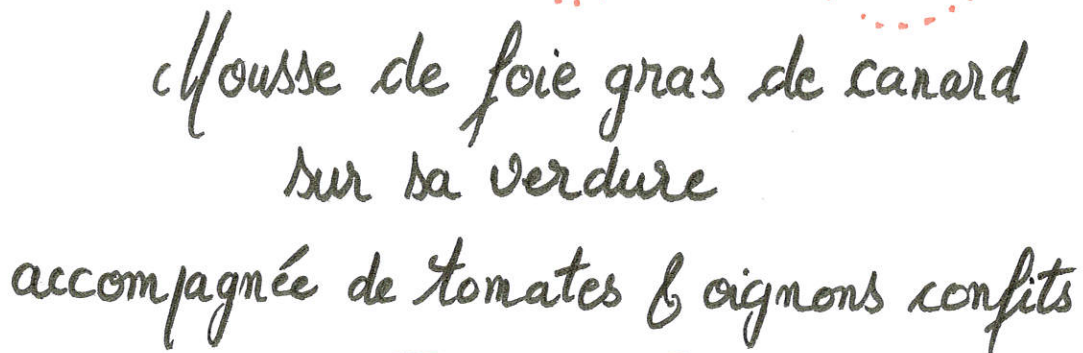 Mousse de foie gras de canard
sur sa verdure
accompagnée de tomates & oignons confits